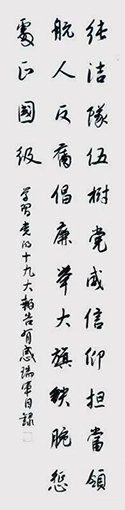 纯洁隊伍树党威信仰担當领
航人反腐倡廉举大旗铁腕惩
處正國级
学習党的十九大報告有感瑞军自録